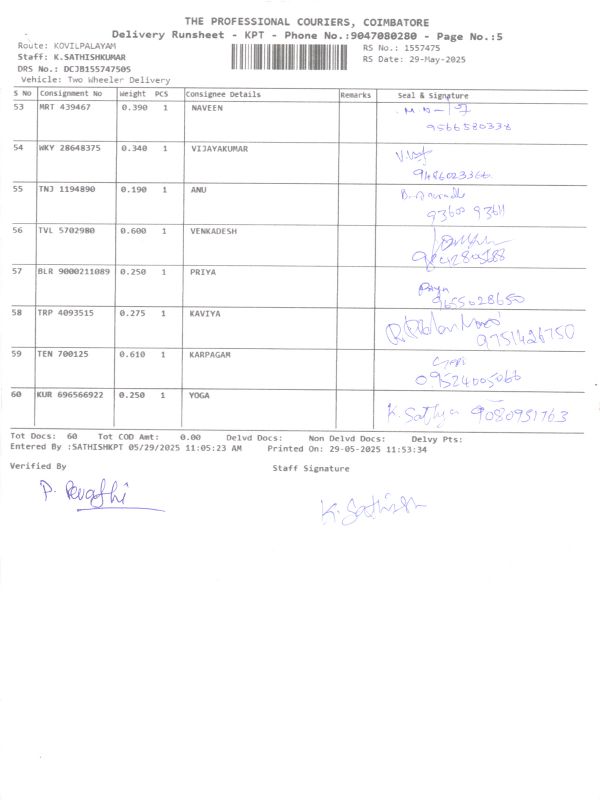 THE PROFESSIONAL COURIERS, COIMBATORE
Delivery Runsheet - KPT - Phone No.:9047080280 - Page No.:5
Route: KOVILPALAYAM RS No.: 1557475
Staff: K.SATHISHKUMAR RS Date: 29-May-2025
DRS No.: DCJB155747505
Vehicle: Two Wheeler Delivery
S No Consignment No Weight PCS Consignee Details Remarks Seal & Signature
53 MRT 439467 0.390 1 NAVEEN
9566580338
54 WKY 28648375 0.340 1 VIJAYAKUMAR
9486023366
55 TNJ 1194890 0.190 1 ANU
93600 93611
56 TVL 5702980 0.600 1 VENKADESH
57 BLR 9000211089 0.250 1 PRIYA
Priya
9655028650
58 TRP 4093515 0.275 1 KAVIYA
9751426750
59 TEN 700125 0.610 1 KARPAGAM
09524005066
60 KUR 696566922 0.250 1 YOGA K. Sathya 9080951763
Tot Docs: 60 Tot COD Amt: 0.00 Delvd Docs: Non Delvd Docs: Delvy Pts:
Entered By :SATHISHKPT 05/29/2025 11:05:23 AM Printed On: 29-05-2025 11:53:34
Verified By Staff Signature
P. Revathi
K. Sathish